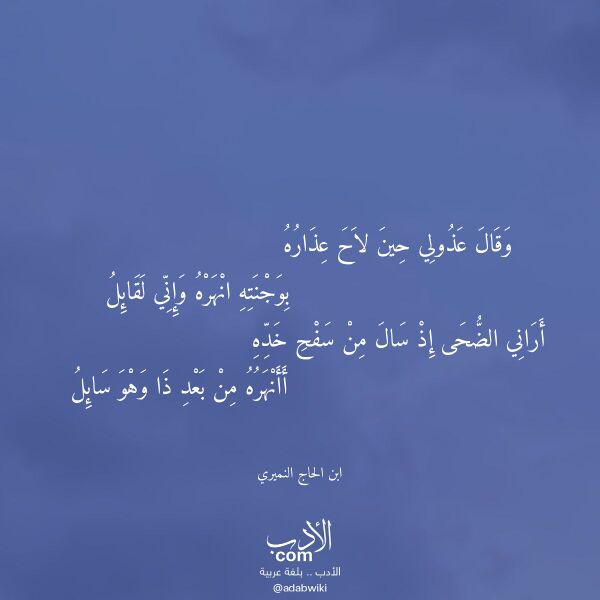 وَقَالَ عَذُولِي حِينَ لاَحَ عِذَارُهُ
بِوَجْنَتِهِ انْهَرْهُ وَإِنِّي لَقَائِلُ
أَرَانِي الضُّحَى إِذْ سَالَ مِنْ سَفْحِ خَدِّهِ
أَأَنْهَرُهُ مِنْ بَعْدِ ذَا وَهْوَ سَائِلُ
ابن الحاج النميري
الأدب
com
الأدب .. بلغة عربية
@adabwiki